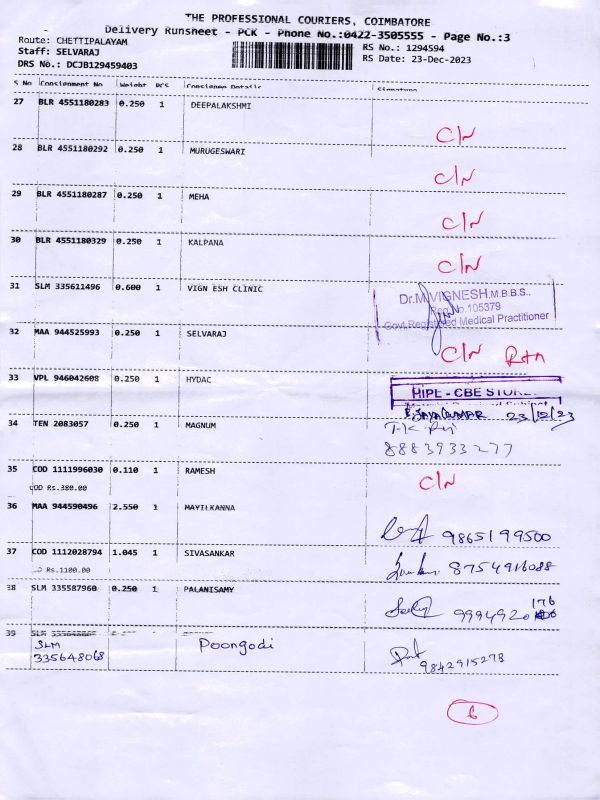 THE PROFESSIONAL COURIERS, COIMBATORE
Delivery Runsheet - PCK - Phone No.:0422-3505555 - Page No.:3
Route: CHETTIPALAYAM
RS No.: 1294594
Staff: SELVARAJ
RS Date: 23-Dec-2023
DRS No.: DCJB129459403
S No Consignment No Weight PCS Consignee Details Signature
27 BLR 4551180283 0.250 1 DEEPALAKSHMI
C/N
28 BLR 4551180292 0.250 1 MURUGESWARI
C/N
29 BLR 4551180287 0.250 1 MEHA
C/N
30 BLR 4551180329 0.250 1 KALPANA
C/N
31 SLM 335611496 0.600 1 VIGN ESH CLINIC
Dr.M.VIGNESH,M.B.B.S.,
Reg.No.105379
Govt.Registered Medical Practitioner
32 MAA 944525993 0.250 1 SELVARAJ
C/N Rtn
33 VPL 946042608 0.250 1 HYDAC
HIPL - CBE STORE
E.JAYAKUMAR 23/12/23
34 TEN 2083057 0.250 1 MAGNUM
8883933277
35 COD 1111996030 0.110 1 RAMESH
C/N
COD Rs.380.00
36 MAA 944590496 2.550 1 MAYILKANNA
9865199500
37 COD 1112028794 1.045 1 SIVASANKAR
8754916088
Rs.1100.00
38 SLM 335587960 0.250 1 PALANISAMY
9994920 176
39
SLM
335648068 Poongodi
9842915278
6